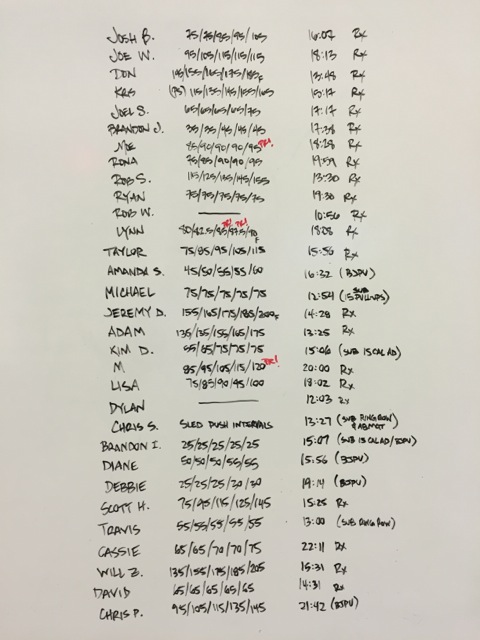 JOSH B. 75/75/85/95/105 16:07 Rx
JOE W. 95/105/115/115/115 18:13 Rx
DON 145/155/165/175/185F 13:48 Rx
KRIS (75) 115/135/145/155/165 15:17 Rx
JOEL S. 65/65/65/65/75 17:17 Rx
BRANDON J. 35/35/45/45/45 17:38 Rx
MOE 85/90/90/90/95 PR! 18:28 Rx
RONA 75/85/90/90/95 19:59 Rx
ROB S. 115/125/135/145/155 13:30 Rx
RYAN 75/75/75/75/75 19:30 Rx
ROB W. 10:56 Rx
LYNN 80/92.5/95/97.5/98F PR! PR! 18:08 Rx
TAYLOR 75/85/95/105/115 15:56 Rx
AMANDA S. 45/50/55/55/60 16:32 (BJPU)
MICHAEL 75/75/75/75/75 12:54 (SUB 15 PULLUPS)
JEREMY D. 155/165/175/185/200F 14:28 Rx
ADAM 135/135/155/165/175 13:25 Rx
KIM D. 55/65/75/75/75 15:06 (SUB 15 CAL AD)
M 85/95/105/115/120 PR! 20:00 Rx
LISA 75/85/90/95/100 18:02 Rx
DYLAN 12:03 Rx
CHRIS S. SLED PUSH INTERVALS 13:27 (SUB RING ROW & ABMAT)
BRANDON I. 25/25/25/25/25 15:07 (SUB 15 CAL AD/BJPU)
DIANE 50/50/50/55/55 15:56 (BJPU)
DEBBIE 25/25/25/30/30 19:14 (BJPU)
SCOTT H. 75/95/115/125/145 15:25 Rx
TRAVIS 55/55/55/55/55 13:00 (SUB RING ROW)
CASSIE 65/65/70/70/75 22:11 Rx
WILL Z. 135/155/175/185/205 15:31 Rx
DAVID 65/65/65/65/65 14:31 Rx
CHRIS P. 95/105/115/135/145 21:42 (BJPU)